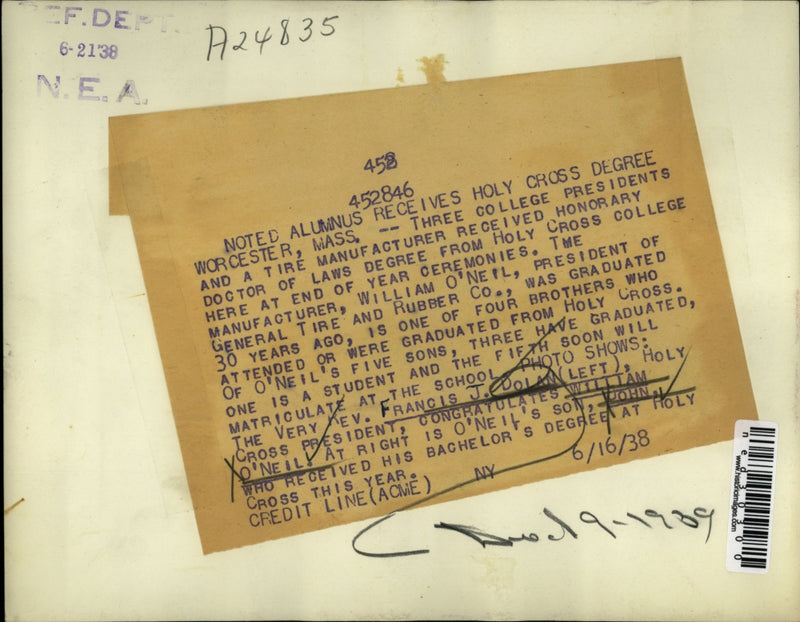 REF.DEPT.
6-21'38
N.E.A.
A24835
458
452846
NOTED ALUMNUS RECEIVES HOLY CROSS DEGREE
WORCESTER, MASS. -- THREE COLLEGE PRESIDENTS
AND A TIRE MANUFACTURER RECEIVED HONORARY
DOCTOR OF LAWS DEGREE FROM HOLY CROSS COLLEGE
HERE AT END OF YEAR CEREMONIES. TME
MANUFACTURER, WILLIAM O'NEIL, PRESIDENT OF
GENERAL TIRE AND RUBBER CO., WAS GRADUATED
30 YEARS AGO, IS ONE OF FOUR BROTHERS WHO
ATTENDED OR WERE GRADUATED FROM HOLY CROSS.
OF O'NEIL'S FIVE SONS, THREE HAVE GRADUATED,
ONE IS A STUDENT AND THE FIFTH SOON WILL
MATRICULATE AT THE SCHOOL. PHOTO SHOWS:
THE VERY REV. FRANCIS J. DOLAN (LEFT), HOLY
CROSS PRESIDENT, CONGRATULATES WILLIAM
O'NEIL. AT RIGHT IS O'NEIL'S SON, JOHN,
WHO RECEIVED HIS BACHELOR'S DEGREE AT HOLY
CROSS THIS YEAR.
CREDIT LINE (ACME) NY 6/16/38
9-1939
ned30300
www.historicimages.com